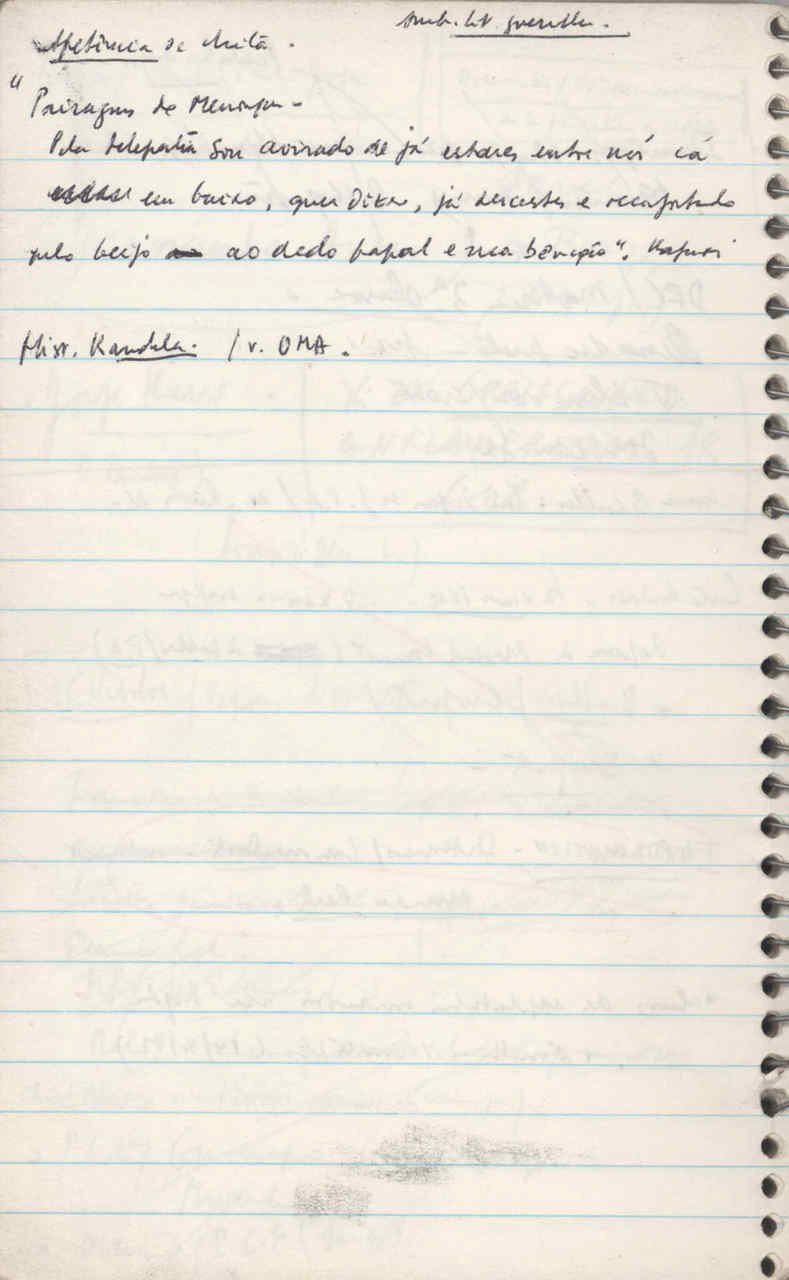 Amb. Lit. guerrilha.
Apetência de chita.
"Paisagem de Mensagem -
Pela telepatia sou avisado de já estares entre nós cá
em baixo, quer dizer, já desceste e reconfortado
pelo beijo ao dedo papal e sua benção". Kafuxi
Hist. Kandela. / v. OMA.